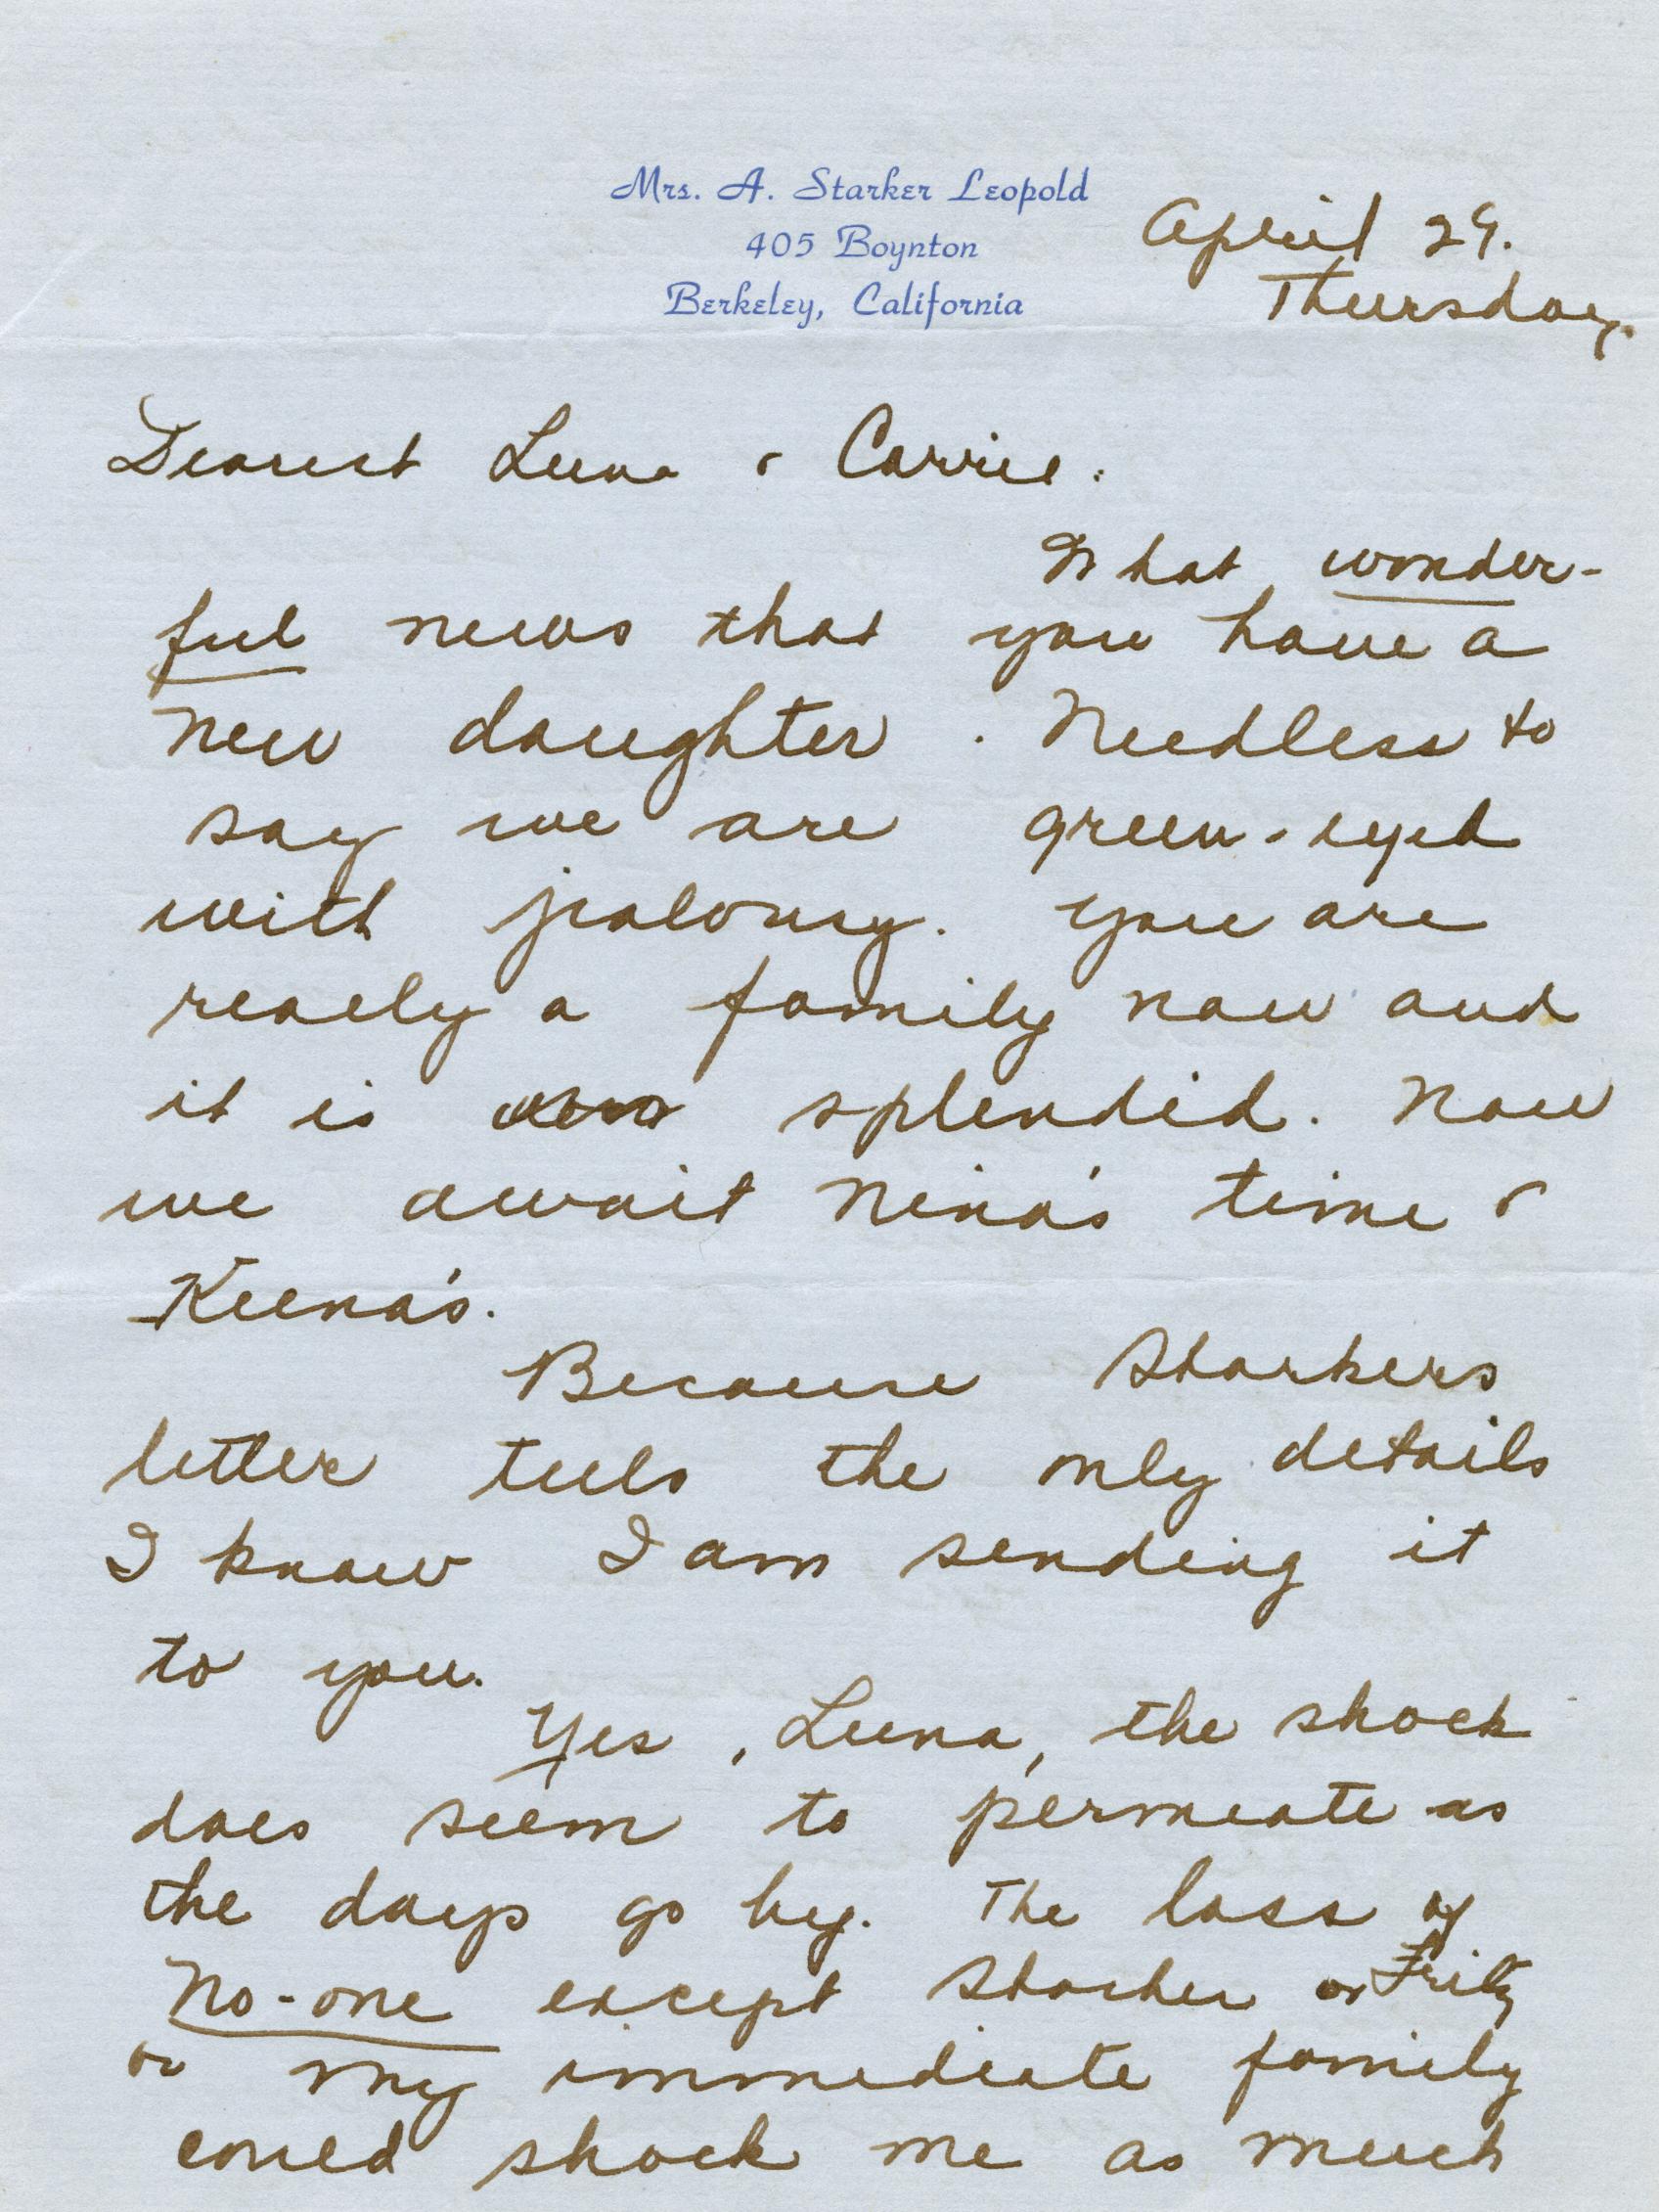 Mrs. A. Starker Leopold
405 Boynton
Berkeley, California
April 29.
Thursday.
Dearest Luna & Carrie:
What wonder-
ful news that you have a
new daughter. Needless to
say we are green-eyed
with jealousy. You are
really a family now and
it is splendid. Now
we await Nina's time &
Keena's.
Because Starkers
letter tells the only details
I know I am sending it
to you.
Yes, Luna, the shock
does seem to permeate as
the days go by. The loss of
no-one except Starker or Fritz
or my immediate family
could shock me as much